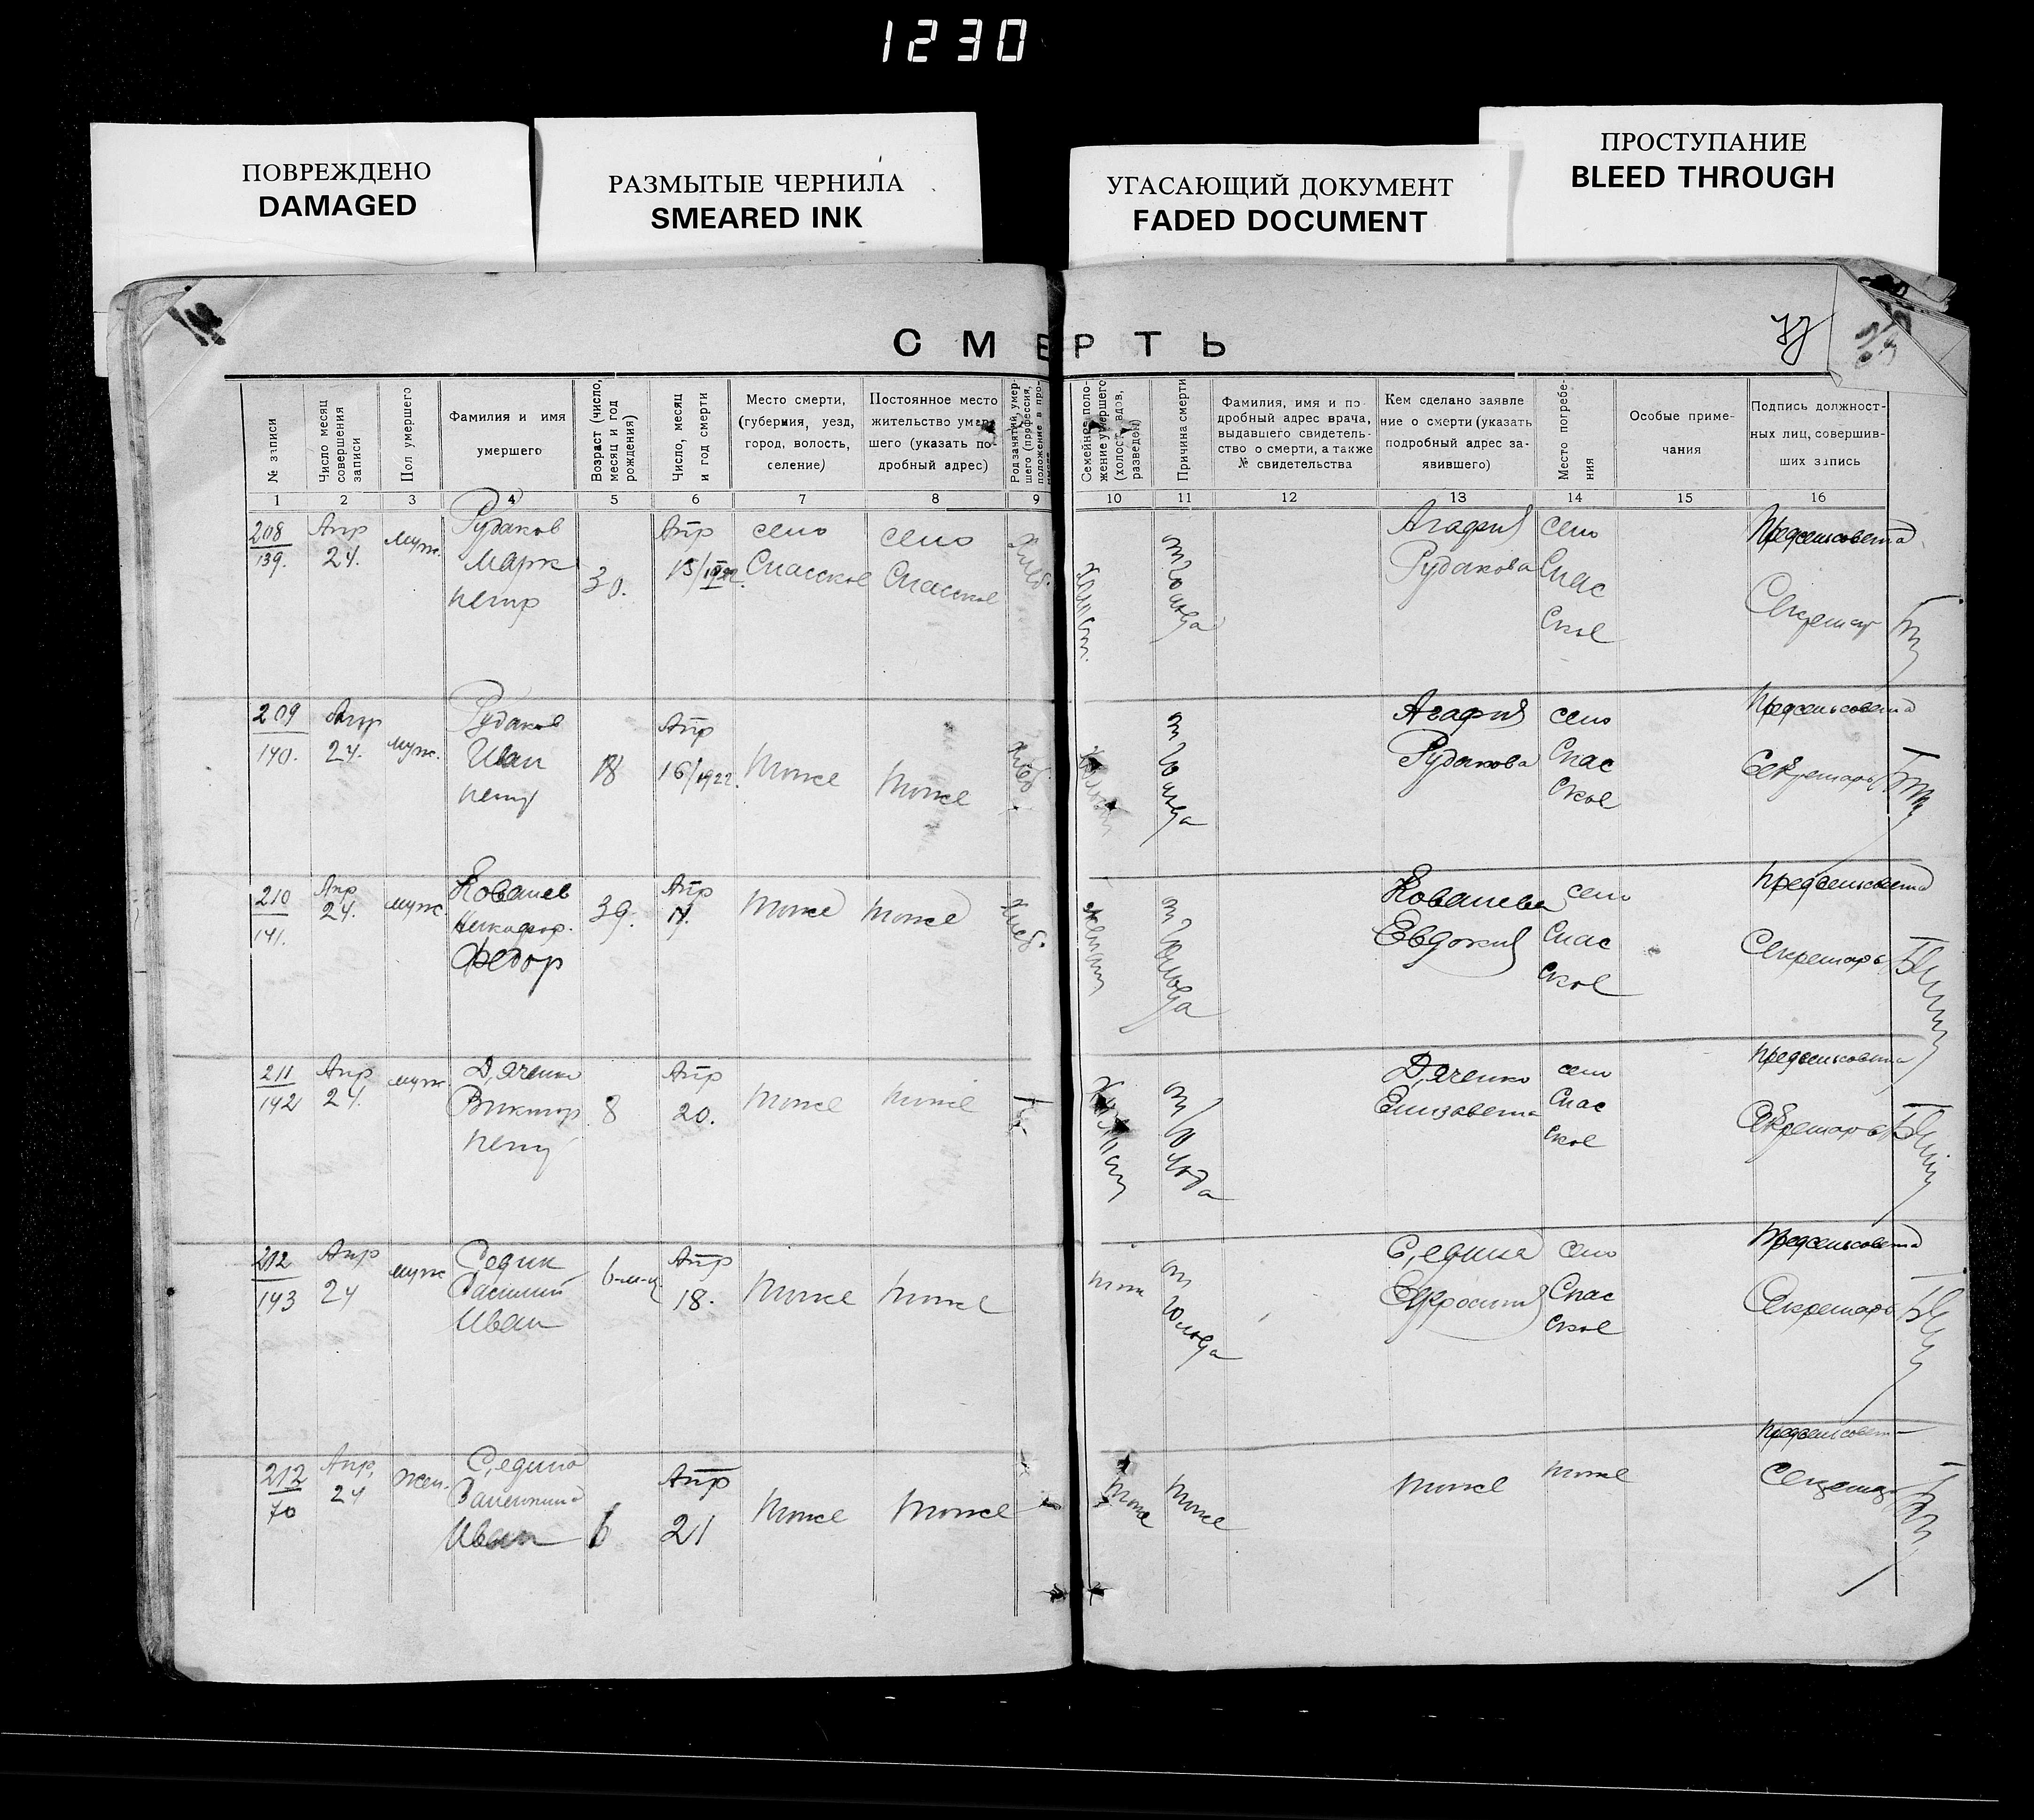 1230
ПОВРЕЖДЕНО
DAMAGED
РАЗМЫТЫЕ ЧЕРНИЛА
SMEARED INK
УГАСАЮЩИЙ ДОКУМЕНТ
FADED DOCUMENT
ПРОСТУПАНИЕ
BLEED THROUGH
СМЕРТЬ
№ записи
Число месяц
совершения
записи
Пол умершего
Фамилия и имя
умершего
Возраст (число,
месяц и год
рождения)
Число, месяц
и год смерти
Место смерти,
(губерния, уезд,
город, волость,
селение)
Постоянное место
жительство умер-
шего (указать по-
дробный адрес)
Род занятий умер-
шего (профессия,
положение в про-
Семейное поло-
жение умершего
(холост, вдов,
разведен)
Причина смерти
Фамилия, имя и по-
дробный адрес врача,
выдавшего свидетель-
ство о смерти, а также
№ свидетельства
Кем сделано заявле
ние о смерти (указать
подробный адрес за-
явившего)
Место погребе-
ния
Особые приме-
чания
Подпись должност-
ных лиц, совершив-
ших запись
1 2 3 4 5 6 7 8 9 10 11 12 13 14 15 16
208
139.
Апр
24.
муж.
Рудаков
Марк
петр
30.
Апр
15/1922.
село
Спасское
село
Спасское
Хлеб.
Холост.
от голода
Агафия
Рудакова
село
Спас
ское
Предсельсовета
Секретар
209
140.
Апр
24.
муж.
Рудаков
Иван
петр
18
Апр
16/1922.
тоже
тоже
Хлеб.
от голода
Агафия
Рудакова
село
Спас
ское
Предсельсовета
Секретарь
210
141.
Апр
24.
муж.
Ковалев
Никифор.
Федор
39.
Апр
тоже
тоже
Хлеб.
женат
от голода
Ковалева
Евдокия
село
Спас
ское
Предсельсовета
Секретарь
211
142
Апр
24.
муж
Дяченко
Виктор
петр
8
Апр
20.
тоже
тоже
Холост
от голода
Дяченко
Елизавета
село
Спас
ское
Предсельсовета
Секретарь
212
143
Апр
24
муж
Седин
Василий
Иван
6-м-ц
Апр
18.
тоже
тоже
от голода
Седина
Ефросиния
село
Спас
ское
Предсельсовета
Секретарь
212
70
Апр,
24
Жен.
Седина
Валентина
Иван
6
Апр
21
тоже
тоже
тоже
тоже
тоже
тоже
Предсельсовет
Секретар